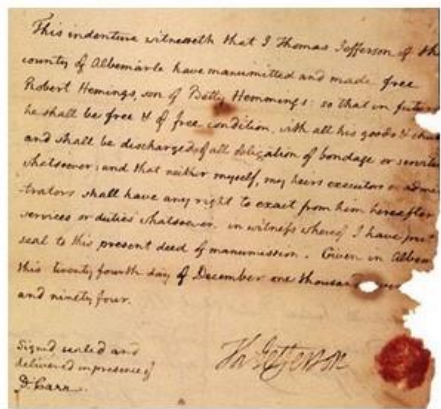 This indenture witnesseth that I Thomas Jefferson of the
county of Albemarle have manumitted and made free
Robert Hemings, son of Betty Hemmings: so that in future
he shall be free & of free condition, with all his goods &
and shall be discharged of all obligation of bondage or
whatsoever: and that neither myself, my heirs executors or
trators shall have any right to exact from him hereafter
services or duties whatsoever. in witness whereof I have
seal to this present deed of manumission. Given in
this twenty fourth day of December one thousand
and ninety four.
Signed sealed and
delivered in presence of
D. Carr
Th Jefferson